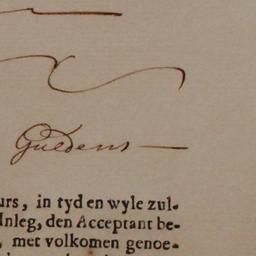 Guldens
urs, in tyd en wyle zul-
Inleg, den Acceptant be-
, met volkomen genoe-